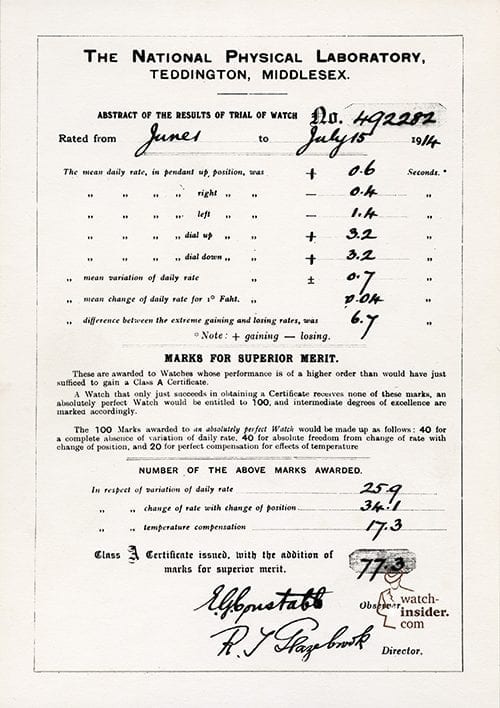 THE NATIONAL PHYSICAL LABORATORY,
TEDDINGTON, MIDDLESEX.
ABSTRACT OF THE RESULTS OF TRIAL OF WATCH No. 492282
Rated from June 1 to July 15 1914
The mean daily rate, in pendant up position, was + 0.6 Seconds.*
„ „ „ „ right „ „ — 0.4 „
„ „ „ „ left „ „ — 1.4 „
„ „ „ „ dial up „ „ + 3.2 „
„ „ „ „ dial down „ „ + 3.2 „
„ mean variation of daily rate „ ± 0.7 „
„ mean change of daily rate for 1° Faht. „ 0.04 „
„ difference between the extreme gaining and losing rates, was 6.7 „
* Note: + gaining — losing.
MARKS FOR SUPERIOR MERIT.
These are awarded to Watches whose performance is of a higher order than would have just
sufficed to gain a Class A Certificate.
A Watch that only just succeeds in obtaining a Certificate receives none of these marks, an
absolutely perfect Watch would be entitled to 100; and intermediate degrees of excellence are
marked accordingly.
The 100 Marks awarded to an absolutely perfect Watch would be made up as follows: 40 for
a complete absence of variation of daily rate, 40 for absolute freedom from change of rate with
change of position, and 20 for perfect compensation for effects of temperature
NUMBER OF THE ABOVE MARKS AWARDED.
In respect of variation of daily rate 25.9
„ „ change of rate with change of position 34.1
„ „ temperature compensation 17.3
Class A Certificate issued, with the addition of
marks for superior merit. 77.3
E G Constable Observer.
R. T. Glazebrook Director.
watch-
insider.
com